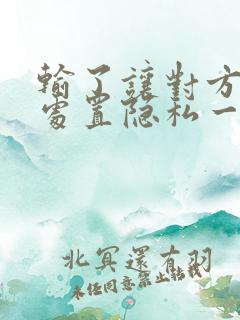 輸了讓對方
處置隐私一
北冥還有羽
未经同意禁止转载